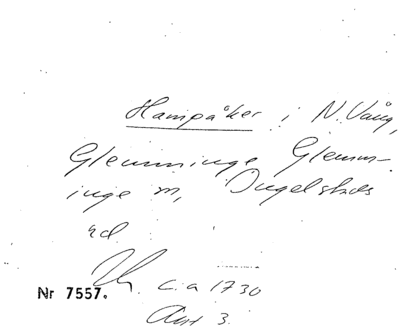 Hampåker i N. Vång,
Glemminge Glemm-
inge sn, Ingelstads
hd
Nr 7557. c:a 1730
Akt 3.